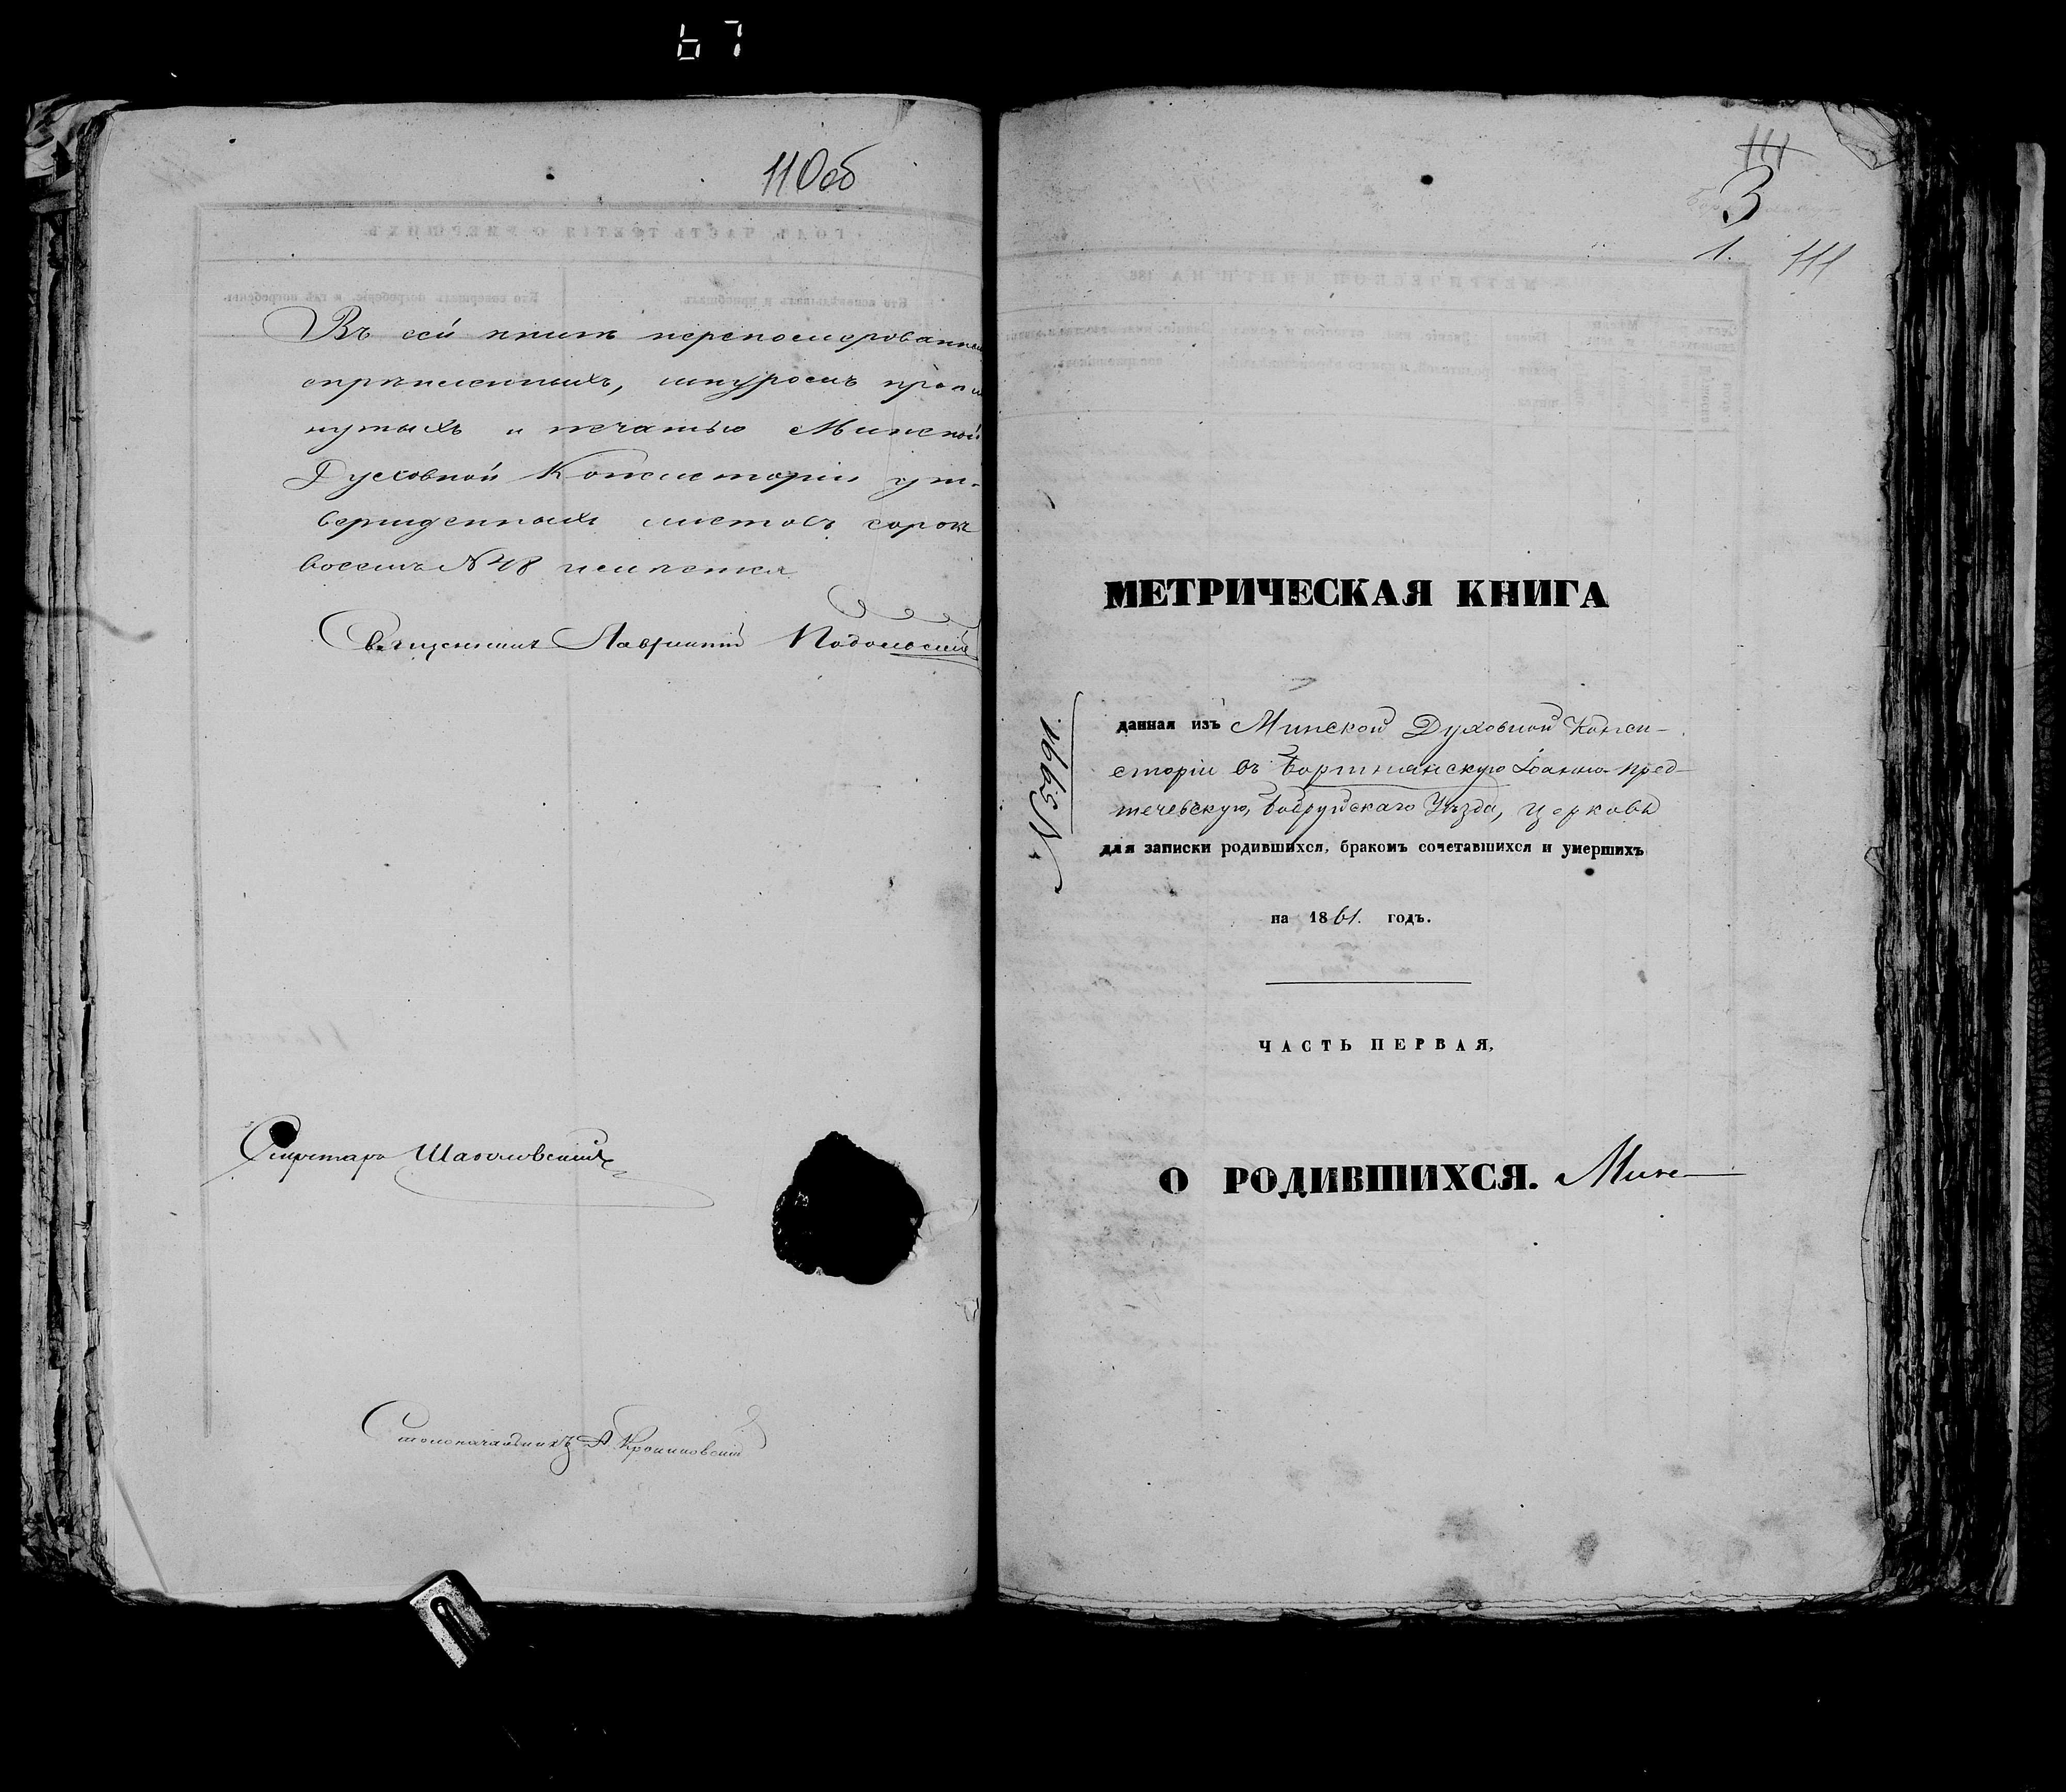 67
110об
Въ сей книгѣ перенумерованныхъ
скрѣпленныхъ, шнуромъ прош
нутыхъ и печатью Минской
Духовной Консисторіи ут-
вержденныхъ листовъ сорокъ
восемь N 48
Священникъ Лаврентій Подольскій
Секретарь
Столоначальникъ А.
111
3
1. 111
МЕТРИЧЕСКАЯ КНИГА
N 5991.
данная изъ Минской Духовной Конси-
сторіи въ Іоанно-Пред-
течевскую, Бобруйскаго Уѣзда, церковь
для записки родившихся, бракомъ сочетавшихся и умершихъ
на 1861. годъ.
ЧАСТЬ ПЕРВАЯ,
О РОДИВШИХСЯ. Мин